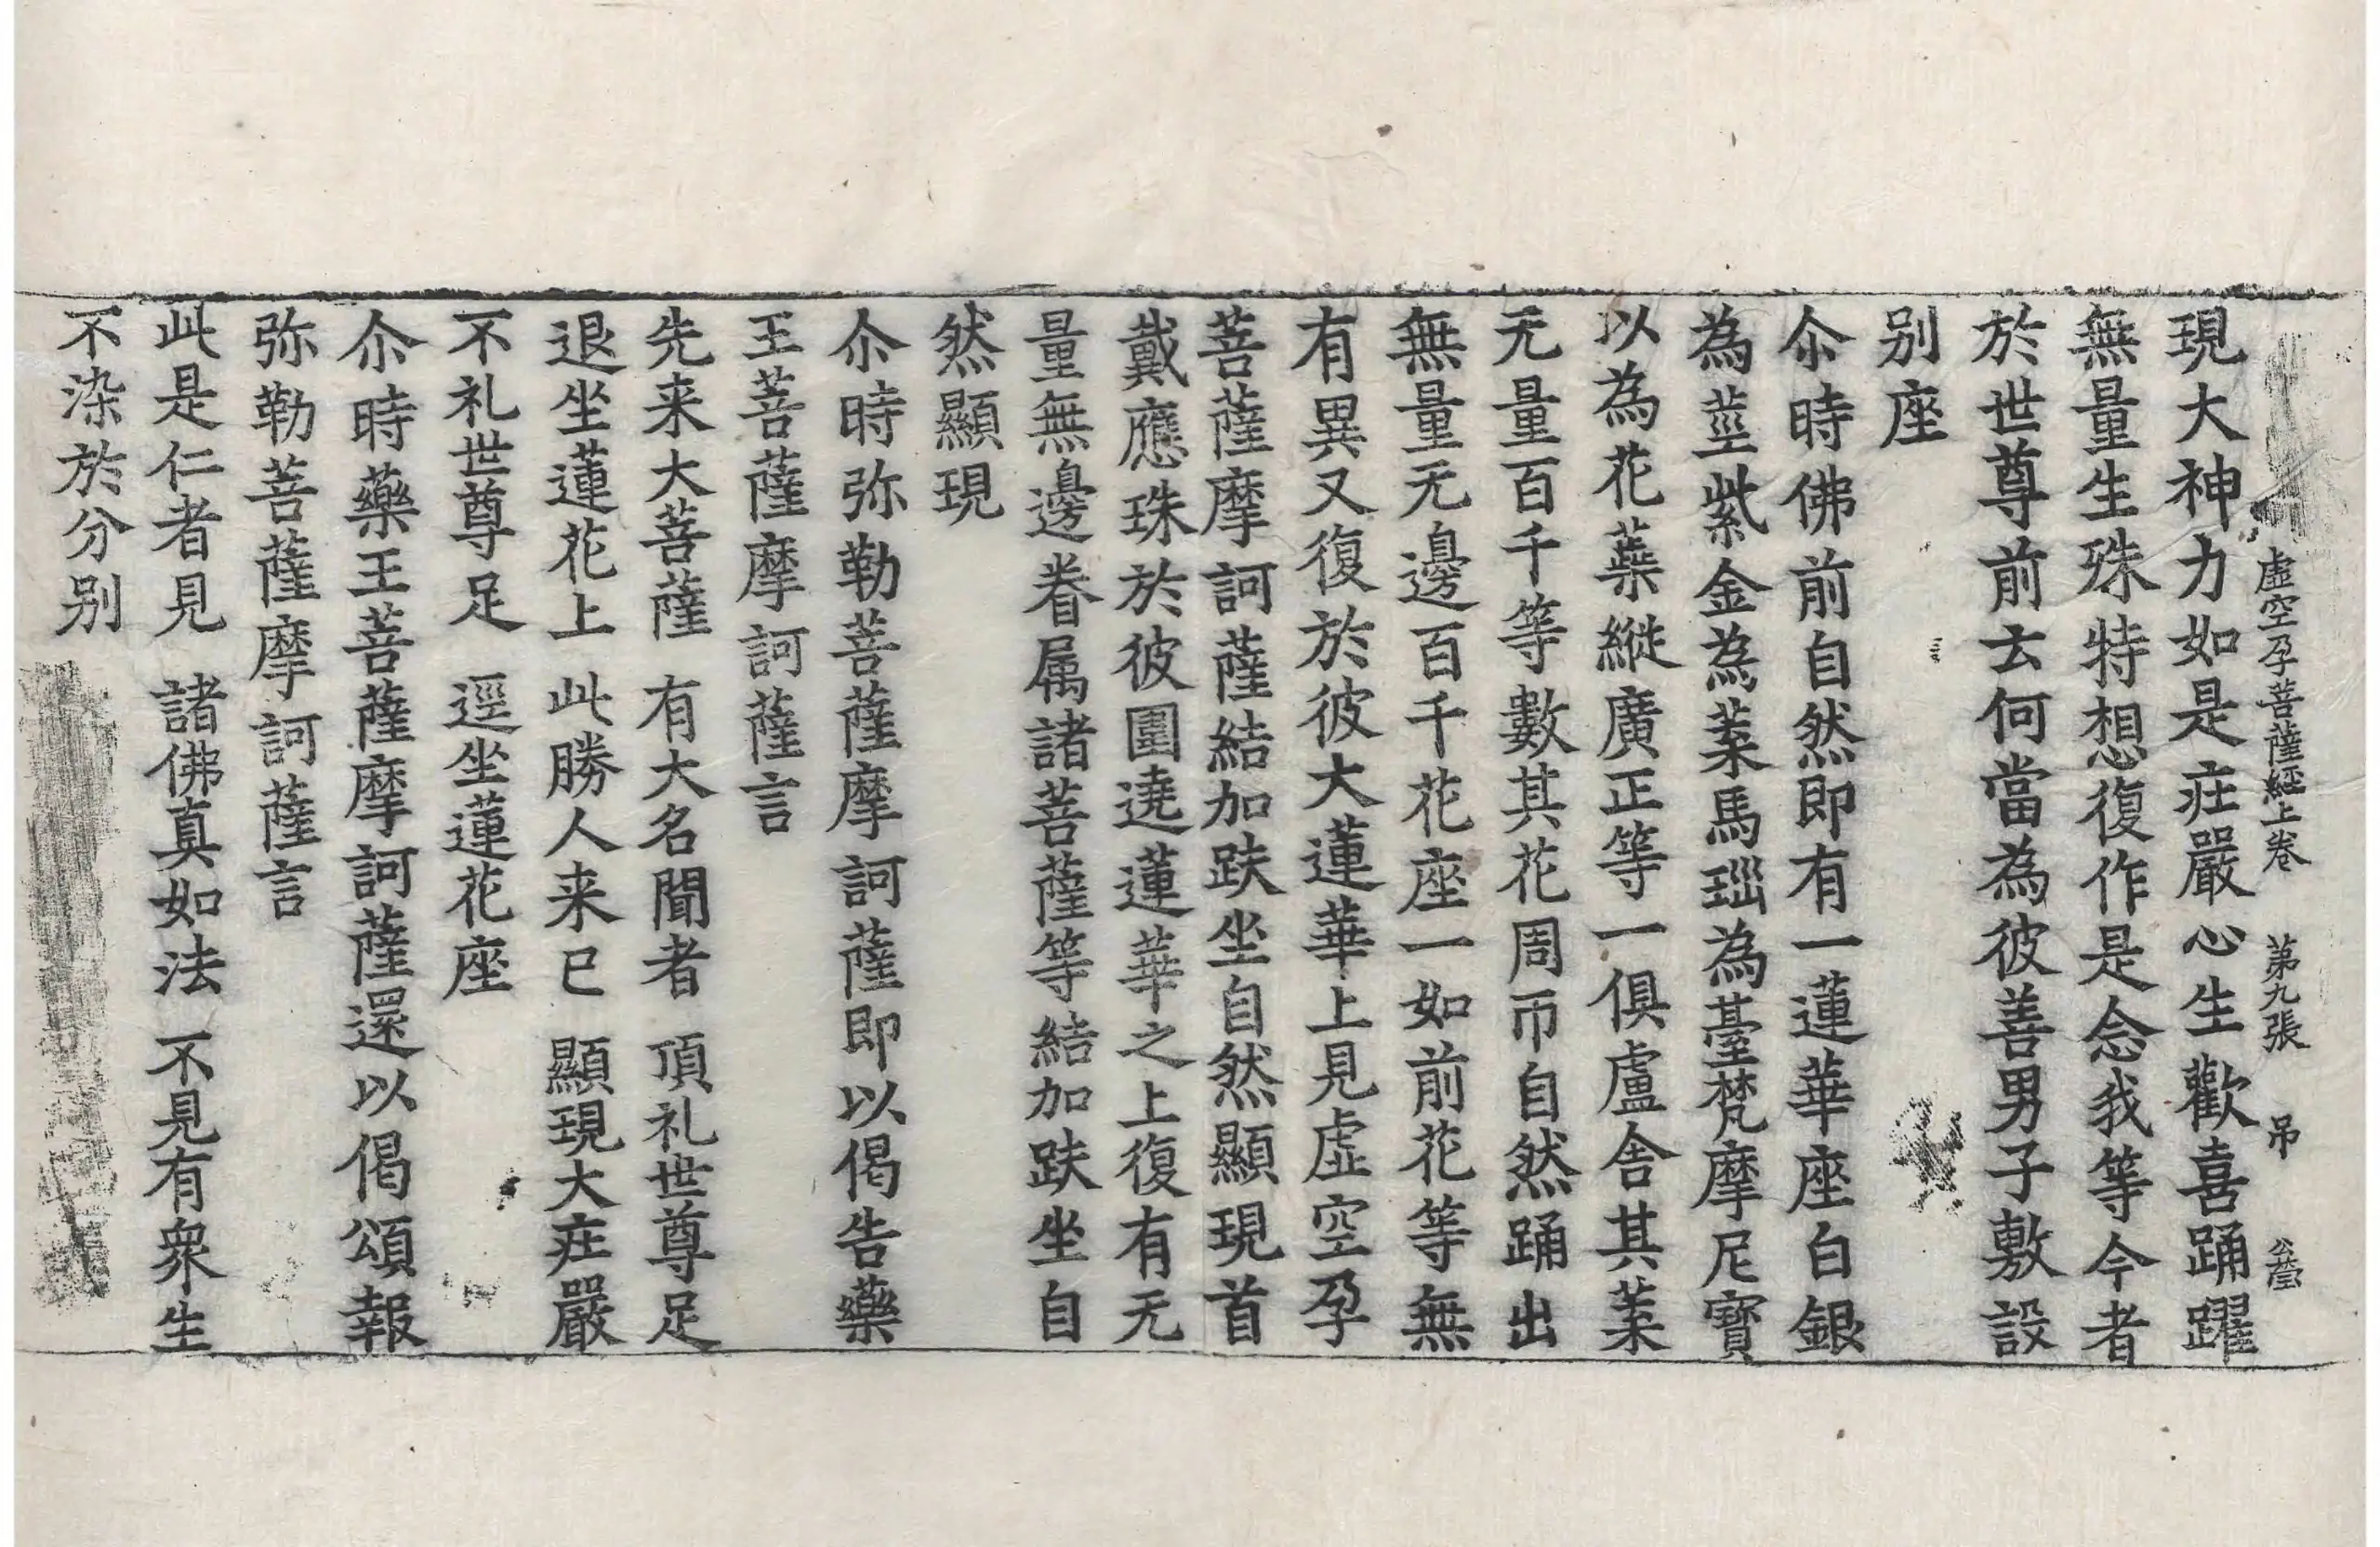 虛空孕菩薩經上卷 第九張 吊
現大神力如是庄嚴心生歡喜踊躍
無量生殊特想復作是念我等今者
於世尊前云何當為彼善男子敷設
别座
尒時佛前自然即有一蓮華座白銀
為莖紫金為葉馬瑙為臺梵摩尼寶
以為花蘂縱廣正等一俱盧舍其葉
无量百千等數其花周帀自然踊出
無量无邊百千花座一如前花等無
有異又復於彼大蓮華上見虛空孕
菩薩摩訶薩結加趺坐自然顯現首
戴應珠於彼圍遶蓮華之上復有无
量無邊眷属諸菩薩等結加趺坐自
然顯現
尒時弥勒菩薩摩訶薩即以偈告藥
王菩薩摩訶薩言
先来大菩薩 有大名聞者 頂礼世尊足
退坐蓮花上 此勝人来已 顯現大庄嚴
不礼世尊足 逕坐蓮花座
尒時藥王菩薩摩訶薩還以偈頌報
弥勒菩薩摩訶薩言
此是仁者見 諸佛真如法 不見有衆生
不染於分别